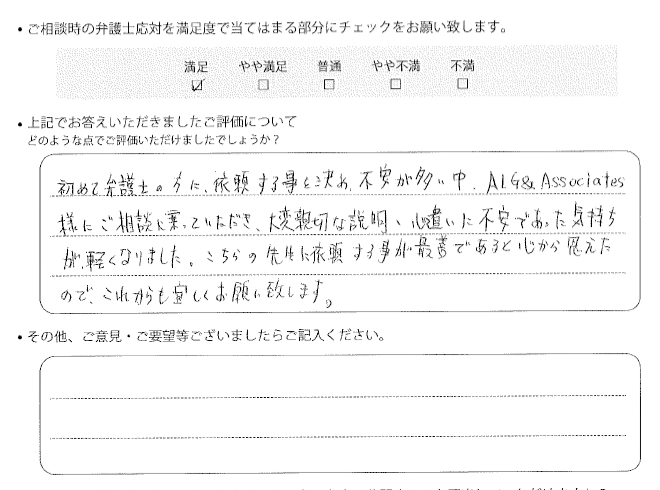 ・ご相談時の弁護士応対を満足度で当てはまる部分にチェックをお願い致します。
満足 やや満足 普通 やや不満 不満
☑ □ □ □ □
・上記でお答えいただきましたご評価について
どのような点でご評価いただけましたでしょうか?
初めて弁護士の方に、依頼する事を決め、不安が多い中、ALG&Associates
様にご相談に乗っていただき、大変親切な説明、心遣いに不安であった気持ち
が、軽くなりました。こちらの先生に依頼する事が最善であると心から思えた
ので、これからも宜しくお願い致します。
・その他、ご意見・ご要望等ございましたらご記入ください。